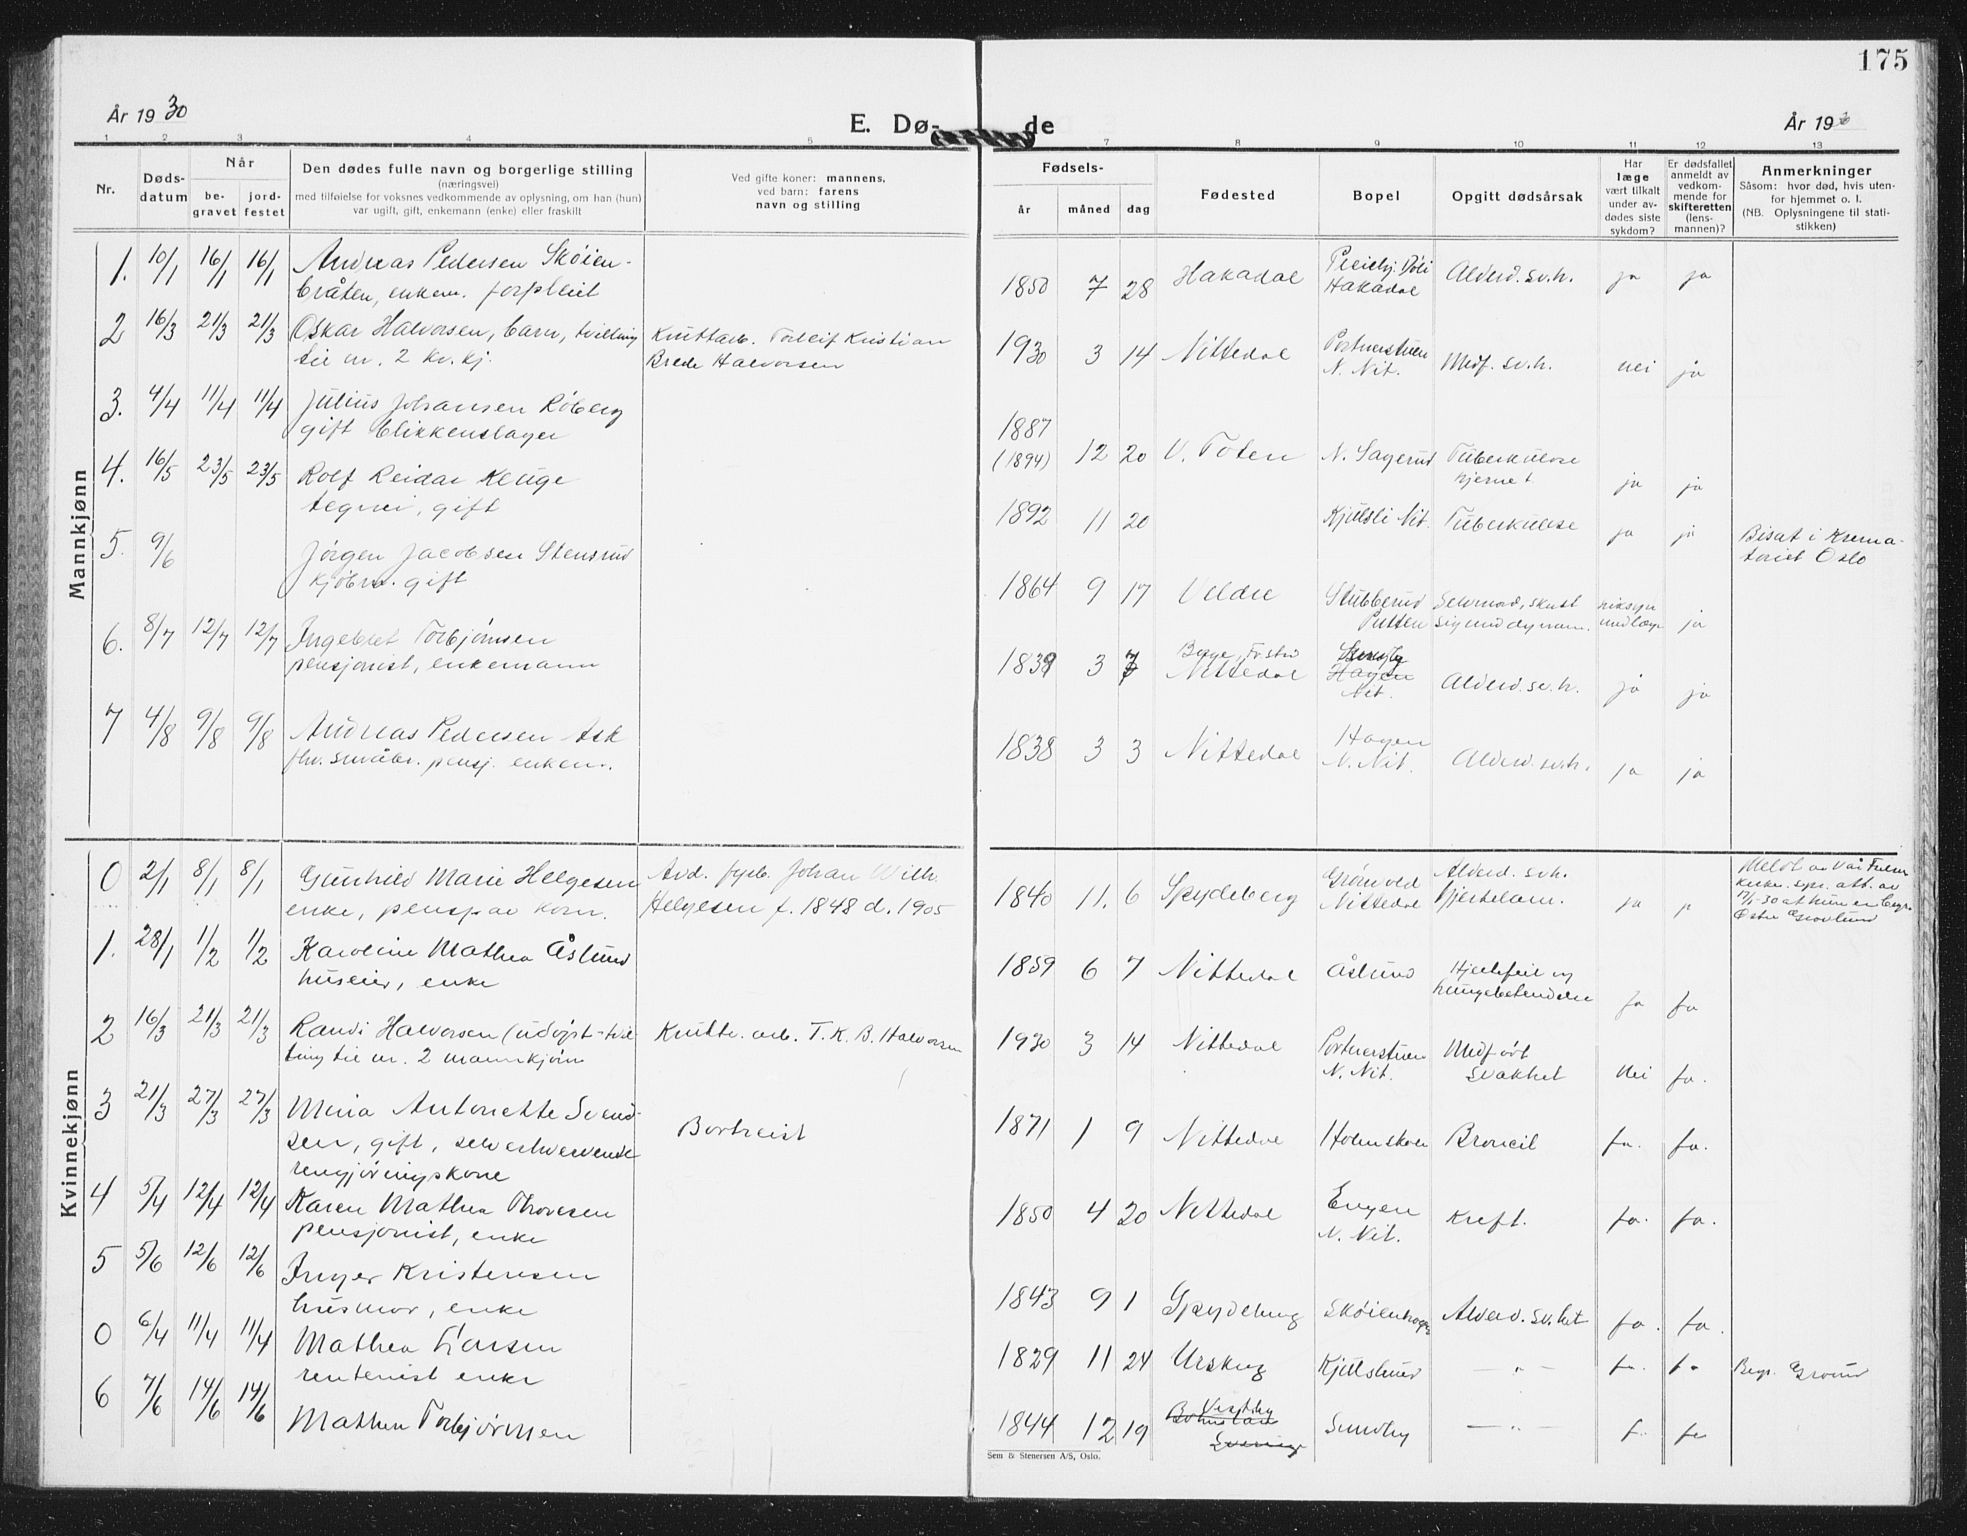 175
År 1930
E. Dø-
de
År 193
1 2 3 4 5 7 8 9 10 11 12 13
Nr.
Døds-
datum
Når
be-
gravet
jord-
festet
Den dødes fulle navn og borgerlige stilling
(næringsvei)
med tilføielse for voksnes vedkommende av oplysning, om han (hun)
var ugift, gift, enkemann (enke) eller fraskilt
Ved gifte koner: mannens,
ved barn: farens
navn og stilling
Fødsels-
år måned dag
Fødested
Bopel
Opgitt dødsårsak
Har
læge
vært tilkalt
under av-
dødes siste
sykdom?
Er dødsfallet
anmeldt av
vedkom-
mende for
skifteretten
(lens-
mannen)?
Anmerkninger
Såsom: hvor død, hvis uten-
for hjemmet o. l.
(NB. Oplysningene til stati-
stikken)
Mannkjønn
1. 10/1 16/1 16/1 Andreas Pedersen Skøien- 1850 7 28 Hakadal Pleiehj. Døli Alderd. sv.h. ja ja
bråten, enkem. forpleiet Hakadal
2 16/3 21/3 21/3 Oskar Halvorsen, barn, tvilling Knuttarb. Torleif Kristian 1930 3 14 Nittedal Portnerstuen Medf. sv.h. nei ja
til nr. 2 kv.kj. Brede Halvorsen N. Nit.
3. 4/4 11/4 11/4 Julius Johansen Røberg 1887
gift blikkenslager (1894) 12 20 V. Toten N. Sagerud Tuberkulose ja ja
4. 16/5 23/5 23/5 Rolf Reidar Kluge 1892 11 20 Kjulsli Nit. Tuberkulose ja ja Bisat i Krema-
tegner, gift toriet Oslo
5. 9/6 Jørgen Jacobsen Stensrud 1864 9 17 Veldre Stubberud Selvmord, skutt ja
kjøbm. gift Putten sig med dynam.
6. 8/7 12/7 12/7 Ingebret Torbjørnsen 1839 3 7 Nittedal Hagen Alderd. sv.h. ja ja
pensjonist, enkemann Nit.
7 4/8 9/8 9/8 Andreas Pedersen Ask 1838 3 3 Nittedal Hagen Alderd. sv.h. ja ja
fhv. småbr. pensj. enkem. N. Nit.
Kvinnekjønn
0 2/1 8/1 8/1 Gunhild Marie Helgesen Avd. Johan Wilh. 1840 11. 6 Spydeberg Grønvold Alderd. sv.h. ja
enke, pens. av kom. Helgesen f. 1848 d. 1905 Nittedal Hjertelam.
1. 28/1 1/2 1/2 Karoline Mathea Åslund 1859 6 7 Nittedal Åslund Hjertefeil og ja ja
huseier, enke lungebetendelse
2 16/3 21/3 21/3 Randi Halvorsen (udøpt - tvil- Knutte. arb. T. K. B. Halvorsen 1930 3 14 Nittedal Portnerstuen Medfødt nei ja.
ling til nr. 2 mannkjøn N. Nit. svakhet
3 21/3 27/3 27/3 Mina Antonette Svend- Bortreist 1871 1 9 Nittedal Holmskolen ja. ja.
sen, gift, selverhvervende
rengjøringskone
4 5/4 12/4 12/4 Karen Mathea Thovesen 1850 4 20 Nittedal Engen Kreft. ja. ja.
pensjonist, enke N. Nit.
5 5/6 12/6 12/6 Inger Kristensen 1843 9 1 Spydeberg Skøienhagen Alderd. sv.het ja. ja.
husmor, enke
0 6/4 11/4 11/4 Mathea Larsen 1829 11 24 Urskog Kjulstuen — " — ja ja Begr. Grorud
rentenist enke
6 7/6 14/6 14/6 Mathea Torbjørnsen 1844 12 19 Vestby Sundby — " — ja ja
Bohuslän
Sverige
Sem & Stenersen A/S, Oslo.